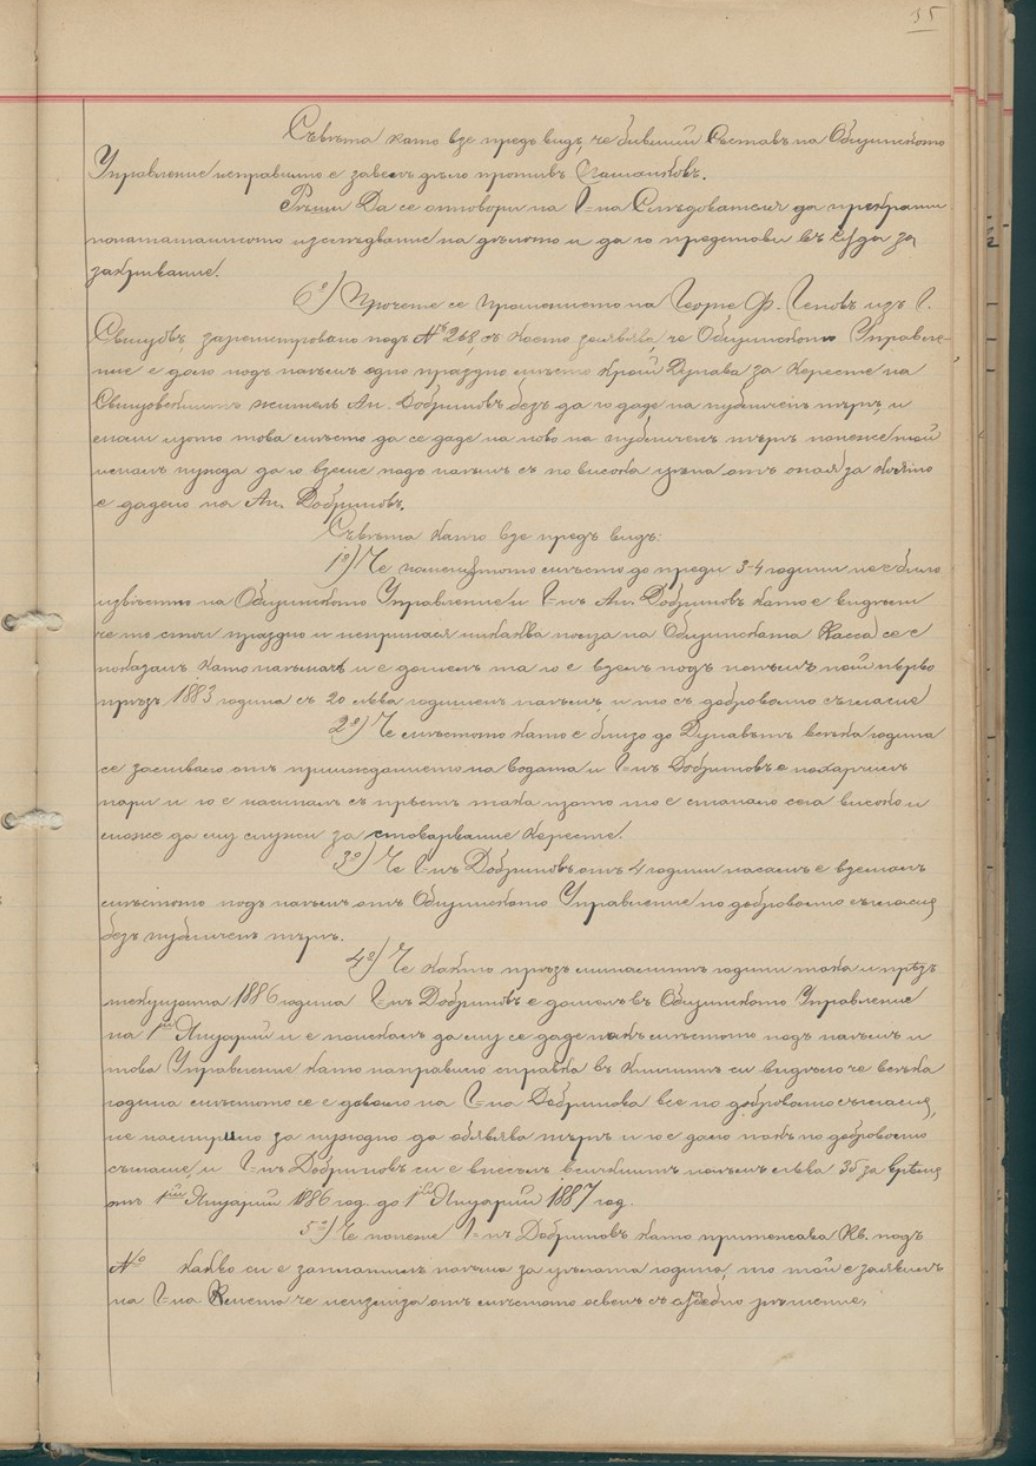 35
Съвѣта като взе предъ видъ, че бившия Съставъ на Общинското
Управление неправилно е завелъ дѣло противъ
Рѣши Да се отговори на Г-на Слѣдователя да прекрати
понататашното изслѣдвание на дѣлото и да го представи въ Съда за
закривание.
6º) Прочете се прошението на Георги Ф. Геновъ изъ г.
Свищовъ, зарегистровано подъ № 268, въ което заявлява, че Общинското Управле-
ние е дало подъ наемъ едно праздно мѣсто край Дунава за Кересте на
Свищовскиятъ жителъ Ан. Добриновъ безъ да го даде на публиченъ търгъ, и
моли щото това мѣсто да се даде на ново на публиченъ търгъ понеже той
ималъ нужда да го вземе подъ наемъ съ по висока цѣна отъ оная за която
е дадено на Ан. Добриновъ.
Съвѣта като взе предъ видъ:
1º) Че помѣнѫтото мѣсто до преди 3-4 години не е било
извѣстно на Общинското Управление и Г-нъ Ан. Добриновъ като е видѣлъ
че то стои праздно и непринася никаква полза на Общинската Касса се е
показалъ като наемателъ и е дошелъ та го е взелъ подъ наемъ най първо
презъ 1883 година съ 20 лѣва годишенъ наемъ, и то съ доброволно съгласие
2º) Че мѣстото като е близо до Дунавътъ всѣка година
се засипвало отъ прииждането на водата и Г-нъ Добриновъ е похарчилъ
пари и го е насипалъ съ пръсть така щото то е станало сега високо и
може да му служи за стоварвание Кересте.
3º) Че Г-нъ Добриновъ отъ 4 години насамъ е вземалъ
мѣстото подъ наемъ отъ Общинското Управление по доброволно съгласие
безъ публиченъ търгъ.
4º) Че както презъ миналитѣ години така и прѣзъ
текущата 1886 година Г-нъ Добриновъ е дошелъ въ Общинското Управление
на 1ий Януарий и е поискалъ да му се даде пакъ мѣстото подъ наемъ и
това Управление като направило справка въ Книгитѣ си видѣло че всѣка
година мѣстото се е давало на Г-на Добринова все по доброволно съгласие,
не намѣрило за нужно да обявлява търгъ и го е дало пакъ по доброволно
съгласие, и Г-нъ Добриновъ си е внесълъ всичкиятъ наемъ лѣва 35 за врѣме
отъ 1ий Януарий 1886 год. до 1ий Януарий 1887 год.
5º) Че понеже Г-нъ Добриновъ като притежава Кв. подъ
№ какво си е заплатилъ наема за цѣлата година, то той е заявилъ
на Г-на Кмета че неизлиза отъ мѣстото освенъ съ съдебно рѣшение,